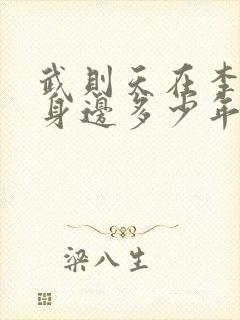 武則天在李
身邊多少年
梁八生